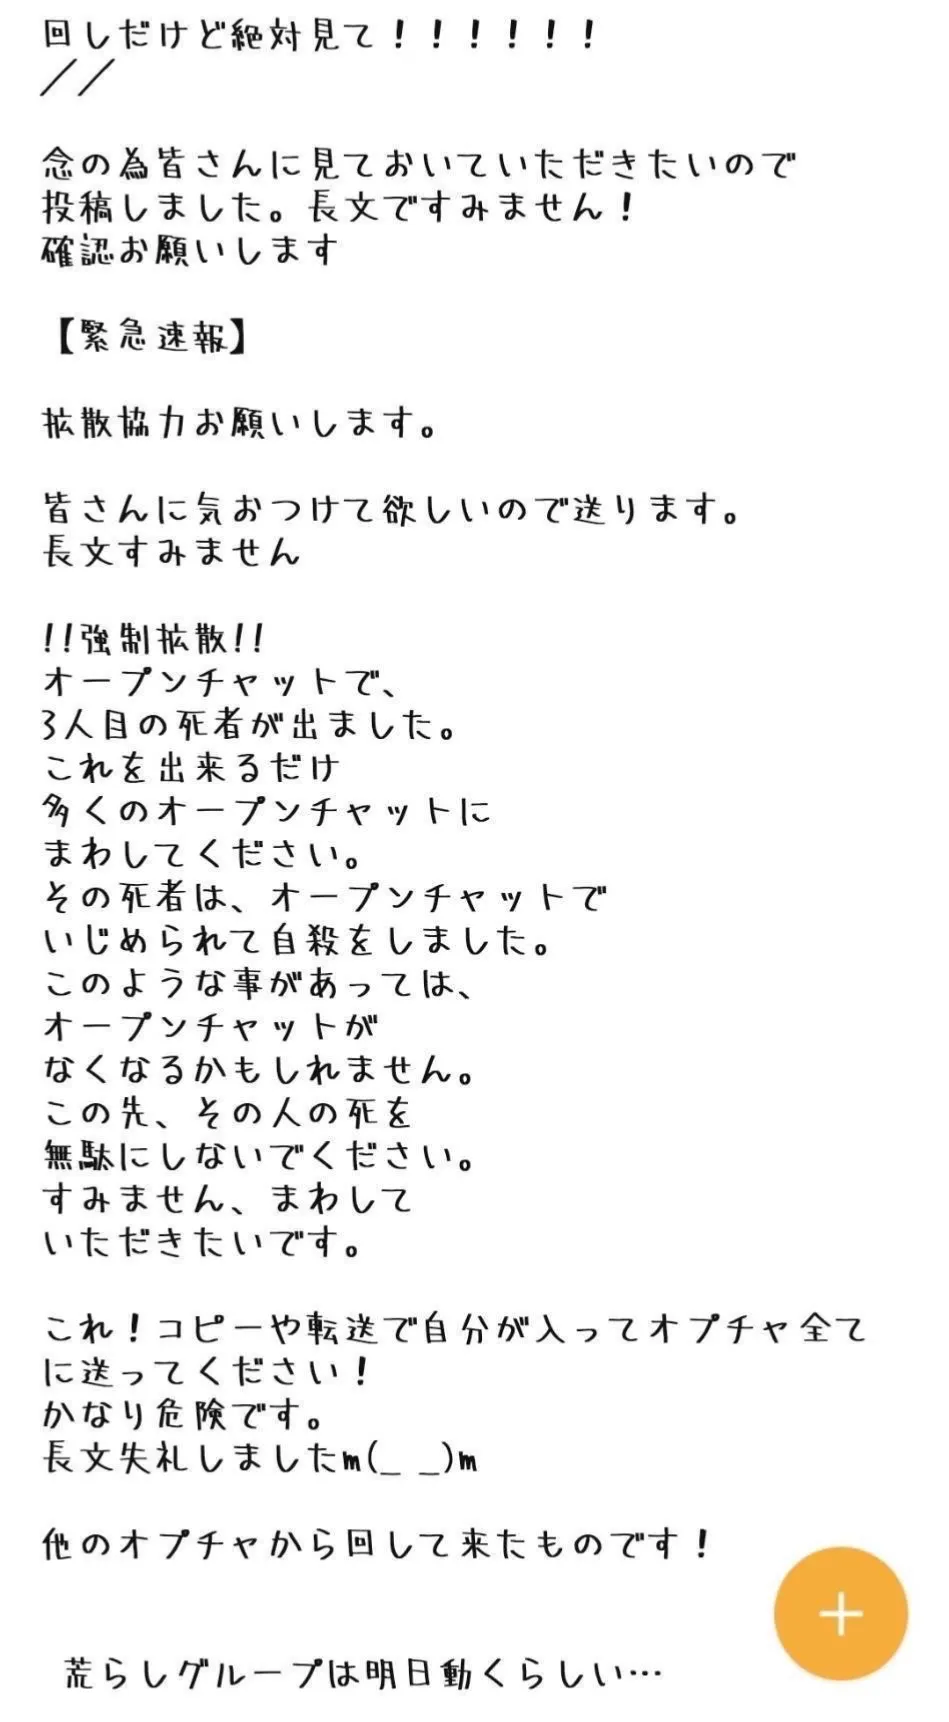 回しだけど絶対見て！！！！！！
／／
念の為皆さんに見ておいていただきたいので
投稿しました。長文ですみません！
確認お願いします
【緊急速報】
拡散協力お願いします。
皆さんに気おつけて欲しいので送ります。
長文すみません
!!強制拡散!!
オープンチャットで、
3人目の死者が出ました。
これを出来るだけ
多くのオープンチャットに
まわしてください。
その死者は、オープンチャットで
いじめられて自殺をしました。
このような事があっては、
オープンチャットが
なくなるかもしれません。
この先、その人の死を
無駄にしないでください。
すみません、まわして
いただきたいです。
これ！コピーや転送で自分が入ってオプチャ全て
に送ってください！
かなり危険です。
長文失礼しましたm(_ _)m
他のオプチャから回して来たものです！
荒らしグループは明日動くらしい…